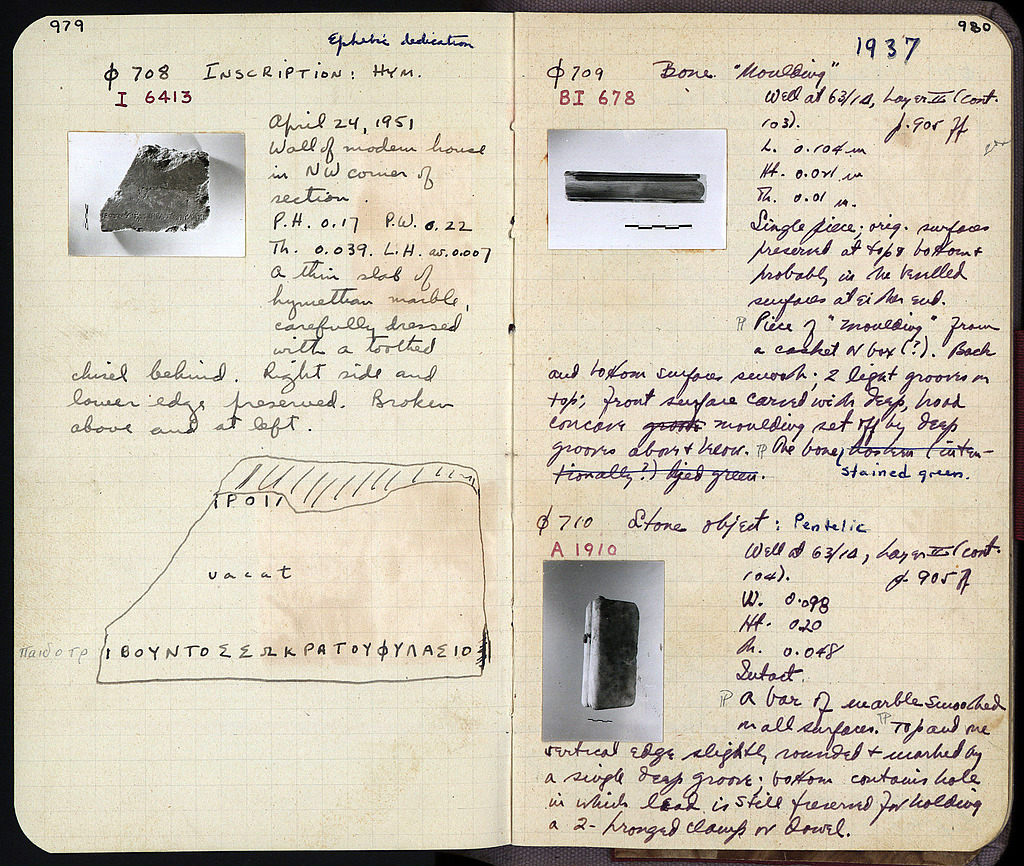 979
Ephebic dedication
φ 708 INSCRIPTION: HYM.
I 6413
April 24, 1951
Wall of modern house
in NW corner of
section.
P.H. 0.17 P.W. 0.22
Th. 0.039. L.H. av. 0.007
A thin slab of
hymettian marble,
carefully dressed
with a toothed
chisel behind. Right side and
lower edge preserved. Broken
above and at left.
ΙΡΟΙΙ
vacat
παιδοτρ ΙΒΟΥΝΤΟΣΣΩΚΡΑΤΟΥΦΥΛΑΣΙΟ
980
1937
φ 709 Bone "Moulding"
BI 678
Well at 63/ΙΔ, Layer II (cont.
103). p. 905 ff
L. 0.104 m
Ht. 0.021 m
Th. 0.01 m.
Single piece; orig. surfaces
preserved at top & bottom &
probably in the bevelled
surfaces at either end.
¶ Piece of "moulding" from
a casket or box (?). Back
and bottom surfaces smooth; 2 light grooves on
top; front surface carved with deep, broad
concave groove moulding set off by deep
grooves above & below. ¶ The bone, has been (inten-
tionally?) dyed green. stained green.
φ 710 Stone object: Pentelic
A 1910
Well at 63/ΙΔ, Layer II (cont.
104). p. 905 ff
W. 0.098
Ht. 0.20
Th. 0.048
Intact.
¶ A bar of marble smoothed
on all surfaces. ¶ Top and one
vertical edge slightly rounded & marked by
a single deep groove; bottom contains hole
in which lead is still preserved for holding
a 2-pronged clamp or dowel.